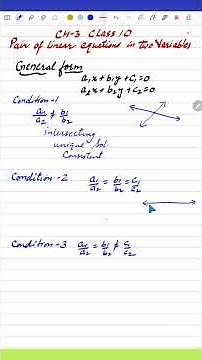 CH-3 CLASS 10
Pair of linear equations in two Variables
General form
a₁x + b₁y + C₁ = 0
a₂x + b₂y + c₂ = 0
Condition-1
a₁/a₂ ≠ b₁/b₂
intersecting
unique Sol.
Consistent
Condition-2 a₁/a₂ = b₁/b₂ = C₁/c₂
Condition-3 a₁/a₂ = b₁/b₂ ≠ C₁/c₂